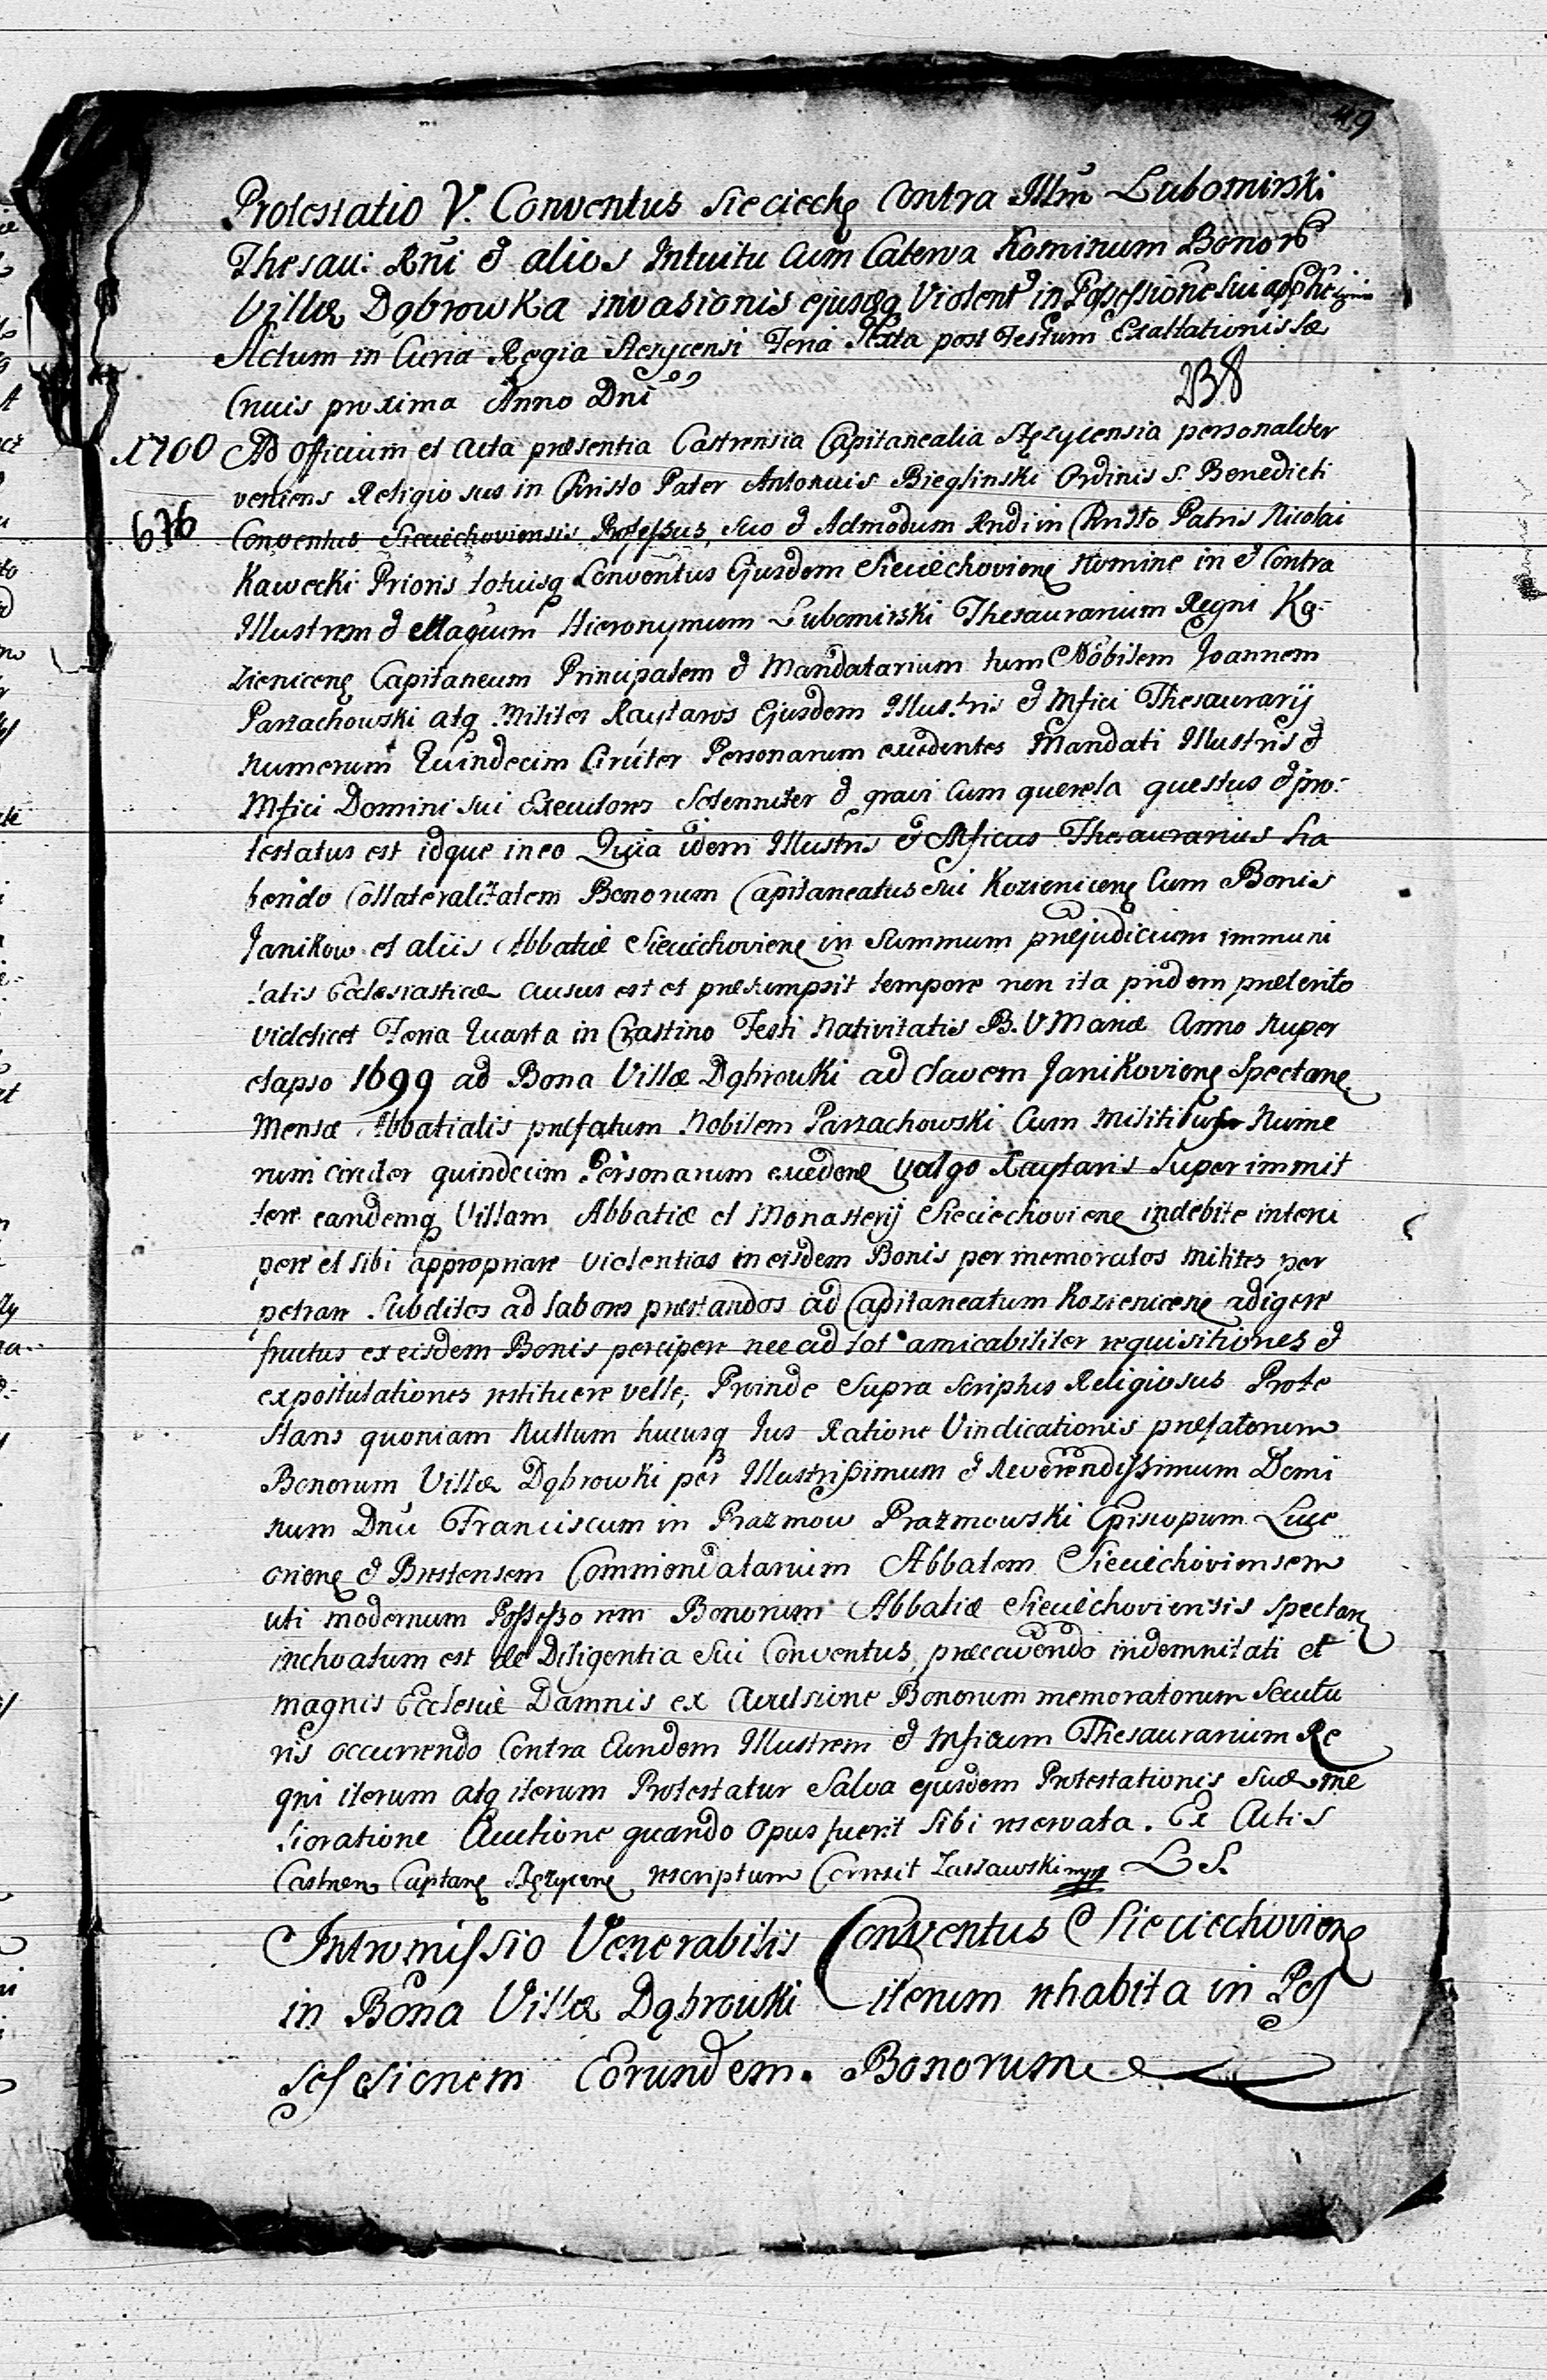 49
Protestatio V. Conventus Sieciech contra Illm Lubomirski
Thesau: Rni & alios Intuitu Cum Caterva Hominum Bonor
Villæ Dąbrowka invasionis ejusdq Violent in Possessione sui
Actum in Curia Regia Stezycensi Feria Sexta post Festum Exaltationis Sæ
Crucis proxima Anno Dni
238
1700 Ad Officium et acta præsentia Castrensia Capitanealia Stęzycensia personaliter
veniens Religiosus in Christo Pater Antonius Bieglinski Ordinis S. Benedicti
676 Conventus Sieciechoviensis Professus, suo & Admodum Rndi in Christo Patris Nicolai
Kawecki Prioris totiusq Conventus Ejusdem Sieciechovien nomine in & Contra
Illustrem & Magcum Hieronymum Lubomirski Thesaurarium Regni Ko-
zienicen Capitaneum Principalem & Mandatarium tum Nobilem Joannem
Parzachowski atq Milites Raytaros Ejusdem Illustris & Mfici Thesaurarij
numerum Quindecim Circiter Personarum excedentes Mandati Illustris &
Mfici Domini sui Executores Solenniter & gravi Cum querela questus & pro-
testatus est idque in eo Quia idem Illustris & Mficus Thesaurarius ha
bendo Collateralitatem Bonorum Capitaneatus sui Kozienicen Cum Bonis
Janikow et aliis Abbatiæ Sieciechovien in Summum præjudicium immuni
tatis Ecclesiasticæ ausus est et præsumpsit tempore non ita pridem præterito
videlicet Feria Quarta in Crastino Festi Nativitatis B. V Mariæ Anno nuper
elapso 1699 ad Bona Villæ Dąbrowki ad clavem Janikovien Spectan
Mensæ Abbatialis præfatum Nobilem Parzachowski Cum Militibus Nume
rum circiter quindecim Personarum exceden vulgo Raytaris Superimmit
tere eandemq Villam Abbatiæ et Monasterij Sieciechovien indebite interci
pere et sibi appropriare violentias in eisdem Bonis per memoratos milites per
petrare Subditos ad labores præstandos ad Capitaneatum Kozienicen adigere
fructus ex eisdem Bonis percipere nec ad tot amicabiliter requisitiones &
expostulationes restituere velle, Proinde Supra scriptus Religiosus Prote
stans quoniam Nullum hucusq Jus Ratione Vindicationis præfatorum
Bonorum Villæ Dąbrowki per Illustrissimum & Reverendissimum Domi
num Dnu Franciscum in Prazmow Prazmowski Episcopum Luce
orien & Brestensem Commendatarium Abbatem Sieciechoviensem
uti modernum Possessorem Bonorum Abbatiæ Sieciechoviensis Spectan
inchoatum est de Diligentia Sui Conventus, præcavendo indemnitati et
magnis Ecclesiæ Damnis ex Avulsione Bonorum memoratorum Secutu
ris occurrendo Contra Eundem Illustrem & Mficum Thesaurarium Re
gni iterum atq iterum Protestatur Salva ejusdem Protestationis Suæ me
lioratione Auctione quando opus fuerit Sibi reservata. Ex Actis
Castren Captan Stęzycen rescriptum Correxit Zassawski mpp L S.
Intromissio Venerabilis Conventus Sieciechovien
in Bona Villæ Dąbrowki iterum rehabita in Pos
sessionem Eorundem. Bonorum